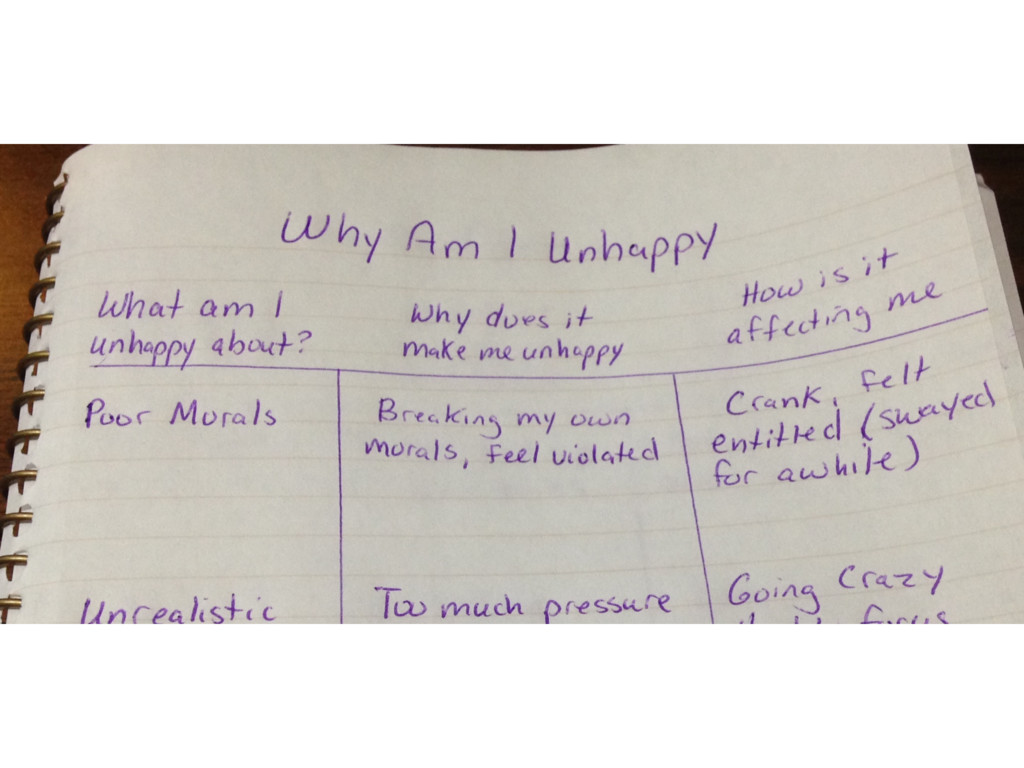 Why Am I Unhappy
What am I
unhappy about?
Why does it
make me unhappy
How is it
affecting me
Poor Morals
Breaking my own
morals, feel violated
Crank, felt
entitled (swayed
for awhile)
Unrealistic
Too much pressure
Going crazy
focus